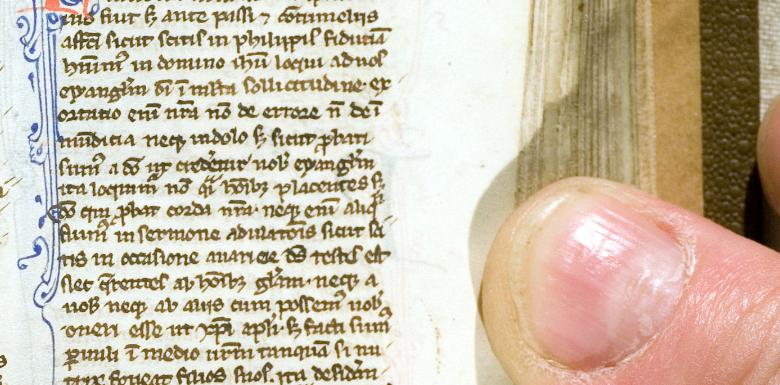 nis fuit sʒ ante passi ⁊ ɔtumeliis
affc̄i sicut scitis in philippis fiduciā
hūim̄ in domino ihū loqui ad uos
eỽangl̄m dī ī mlta sollicitudine. ex
ortatio enī nr̄a nō de errore n̄ de ī
mūdicia neqʒ in dolo sʒ sicut ꝓbati
sum᷒ a dō ut crederetur nob̄ eỽangl̄m
ita loquimur nō qͣi hōibʒ placentes sʒ
dō qui ꝓbat corda nr̄a. neqʒ enī aliqͣ
fuim᷒ in sermone adulatōis sicut sci
tis in occasione auaricie ds̄ testis est
nec q̄rentes ab hōibʒ gl̄am. neqʒ a
uob̄ neqʒ ab aliis cum possem᷒ uob̄
oneri esse ut xp̄i apl̄i. sʒ facti sum᷒
paruuli ī medio urm̄ tanquā si nu
trix foueat filios suos. ita desidān